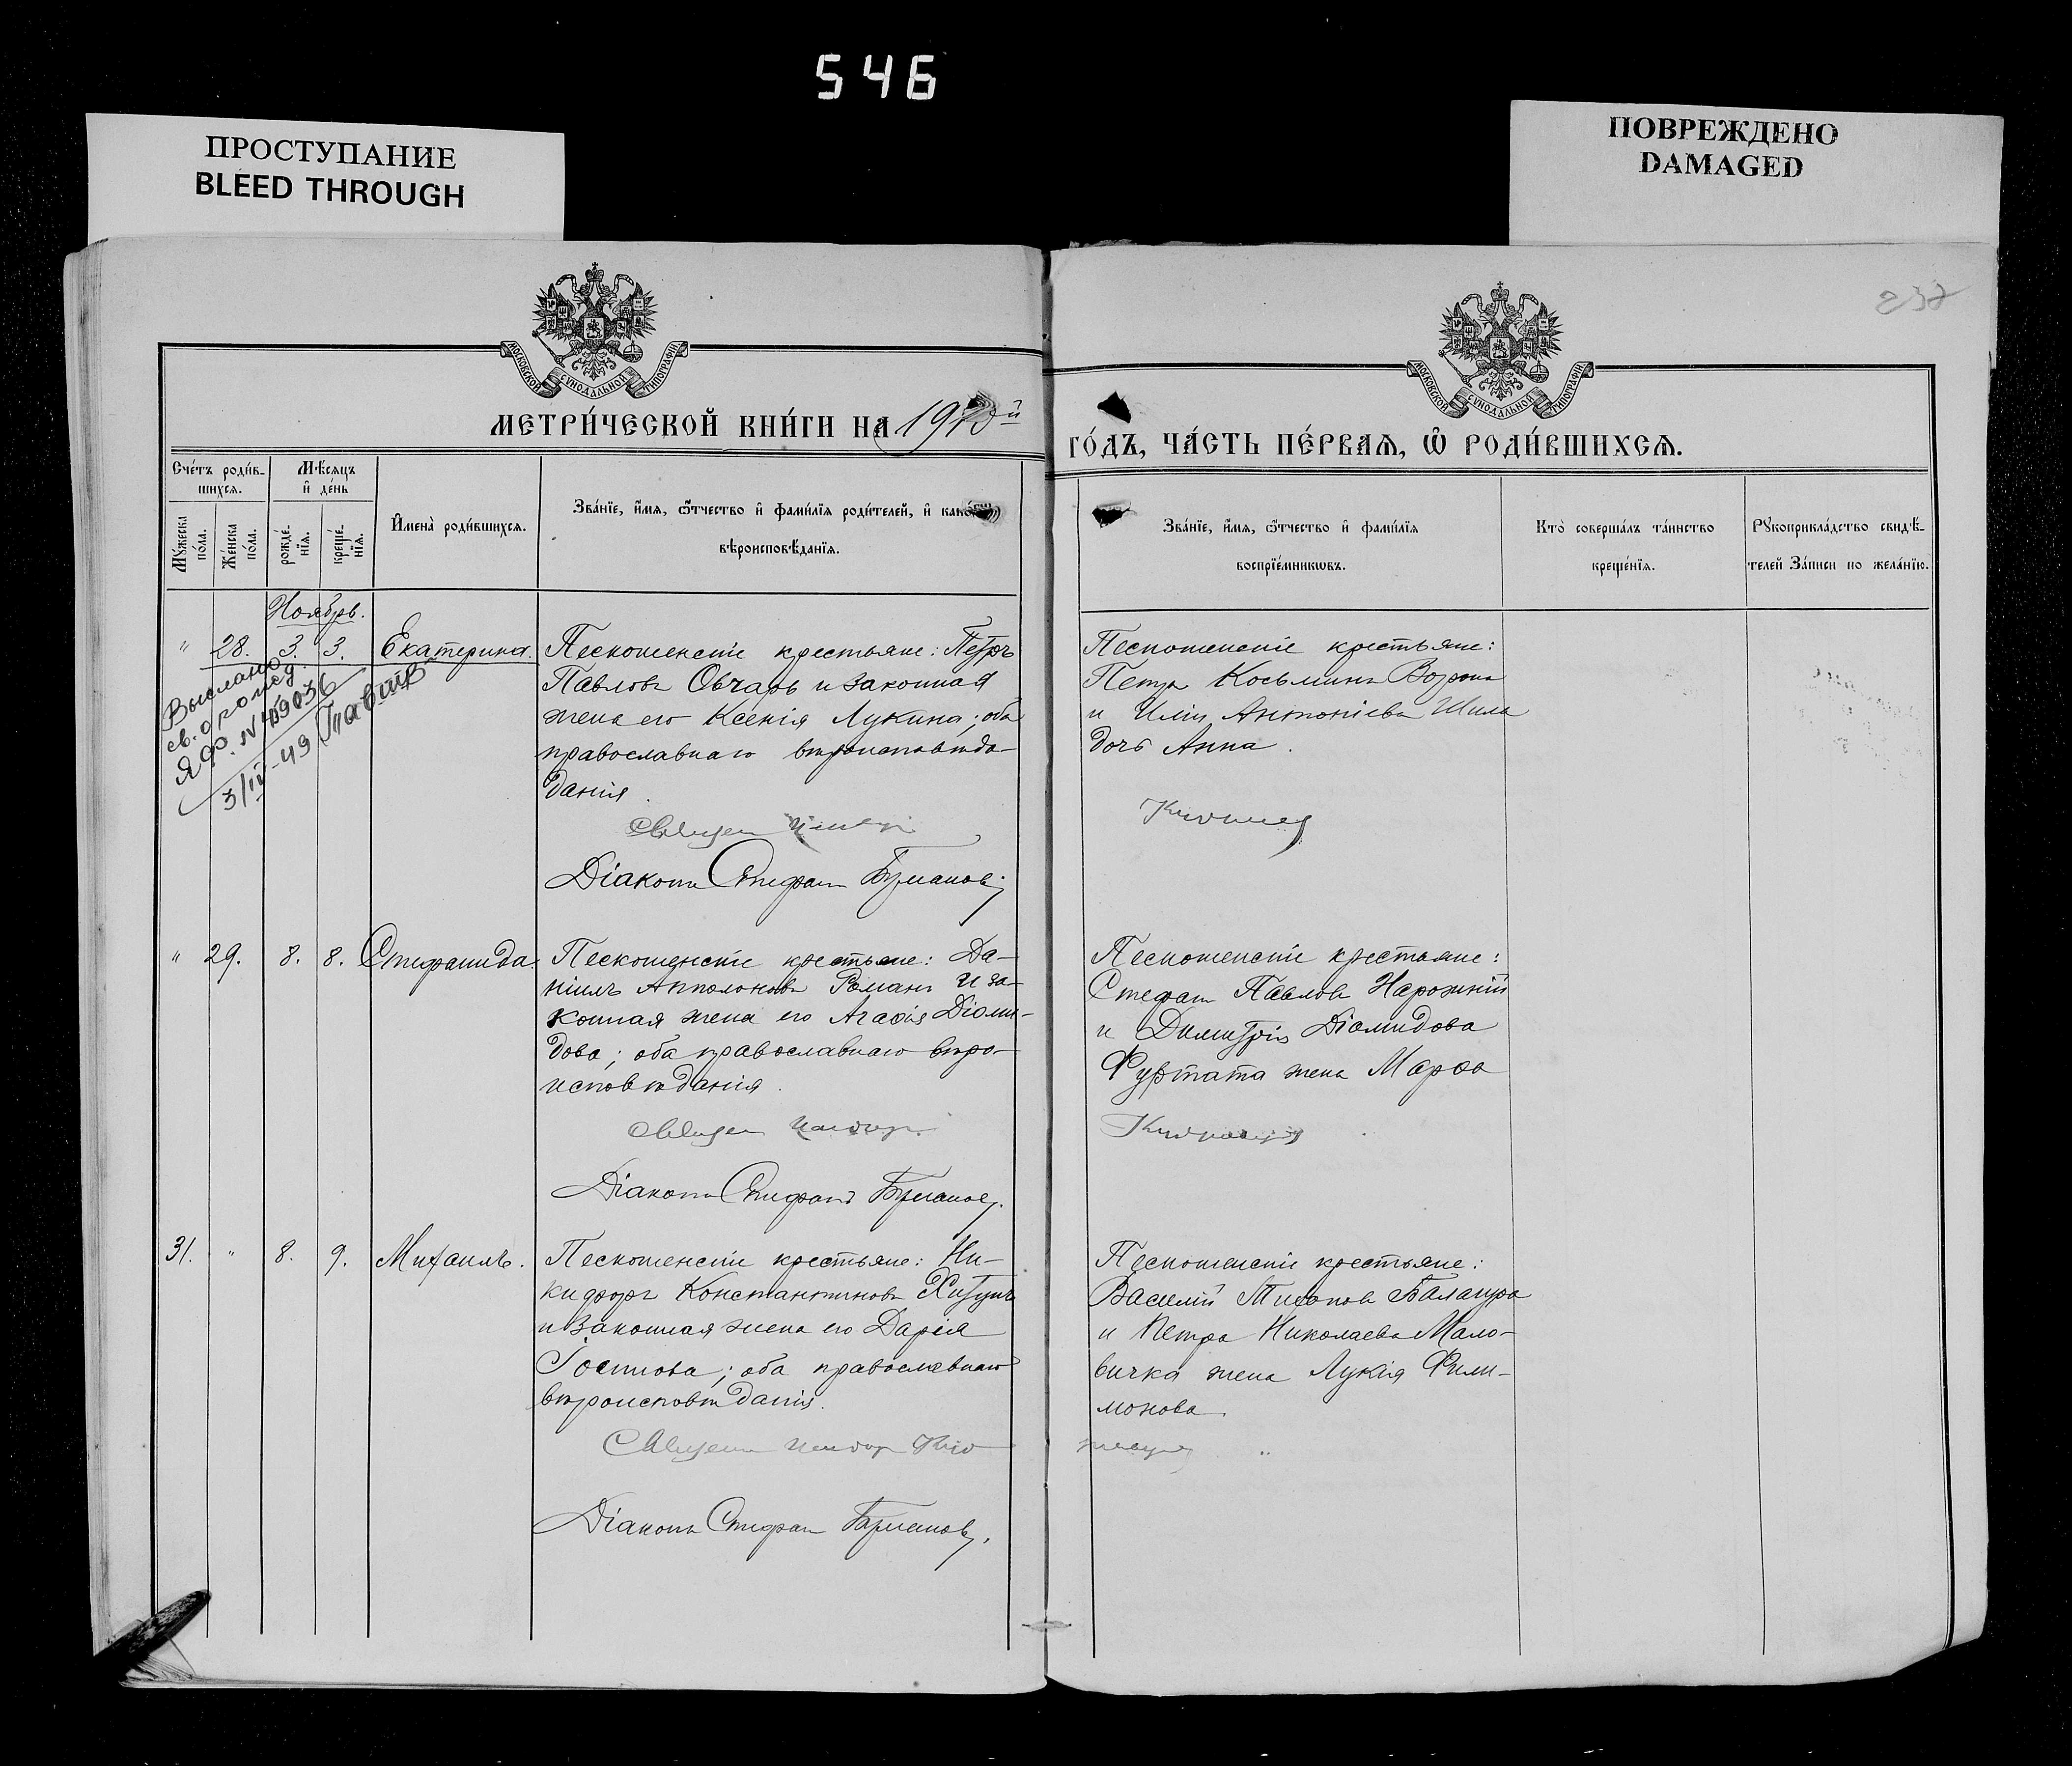 546
ПРОСТУПАНИЕ
BLEED THROUGH
ПОВРЕЖДЕНО
DAMAGED
МОСКОВСКОЙ СѴНОДАЛЬНОЙ ТИПОГРАФІИ
МОСКОВСКОЙ СѴНОДАЛЬНОЙ ТИПОГРАФІИ
237
МЕТРИ́ЧЕСКОЙ КНИ́ГИ НА 1910й
ГО́ДЪ, ЧА́СТЬ ПЕ́РВАЯ, Ѽ РОДИ́ВШИХСЯ.
Сче́тъ роди́в-
шихся.
Мѣсяцъ
и҆ де́нь
Мꙋжеска по́ла.
Же́нска по́ла.
рожде́-
нїя.
креще́-
нїя.
И҆мена̀ роди́вшихся.
Зва́нїе, и҆́мя, ѻ҆́тчество и҆ фами́лїя роди́телей, и҆ како́гѡ
вѣроисповѣ́данїя.
Зва́нїе, и҆́мя, ѻ҆́тчество и҆ фами́лїя
воспрїе́мникѡвъ.
Кто̀ соверша́лъ та́инство
креще́нїя.
Рꙋкоприкла́дство свидѣ́-
телей За́писи по жела́нїю.
Ноябрь.
" 28. 3. 3. Екатерина.
Выслано
св. о рожд.
ЯФ. № 109036
3/IV-49
Пескошенскіе крестьяне: Петръ
Павловъ Овчарь и законная
жена его Ксенія Лукина; оба
православнаго вѣроисповѣдо-
данія.
Діаконъ Стефанъ
Пескошенскіе крестьяне:
Петръ Косьминъ Ворона
и Иліи Антоніева Шила
дочь Анна.
" 29. 8. 8. Стефанида.
Пескошенскіе крестьяне: Да-
ніилъ Апполоновъ Романъ и за-
конная жена его Агафія Діоми-
дова; оба православнаго вѣро-
исповѣданія.
Діаконъ Стефанъ
Пескошенскіе крестьяне:
Стефанъ Павловъ Нарожній
и Димитрія Діомидова
жена Марфа
31. " 8. 9. Михаилъ.
Пескошенскіе крестьяне: Ни-
кифоръ Константиновъ
и законная жена его Дарія
оба православнаго
вѣроисповѣданія.
Діаконъ Стефанъ
Пескошенскіе крестьяне:
Василій Тихоновъ Балагура
и Петра Николаева Мало-
вичка жена Лукія Фили-
монова.